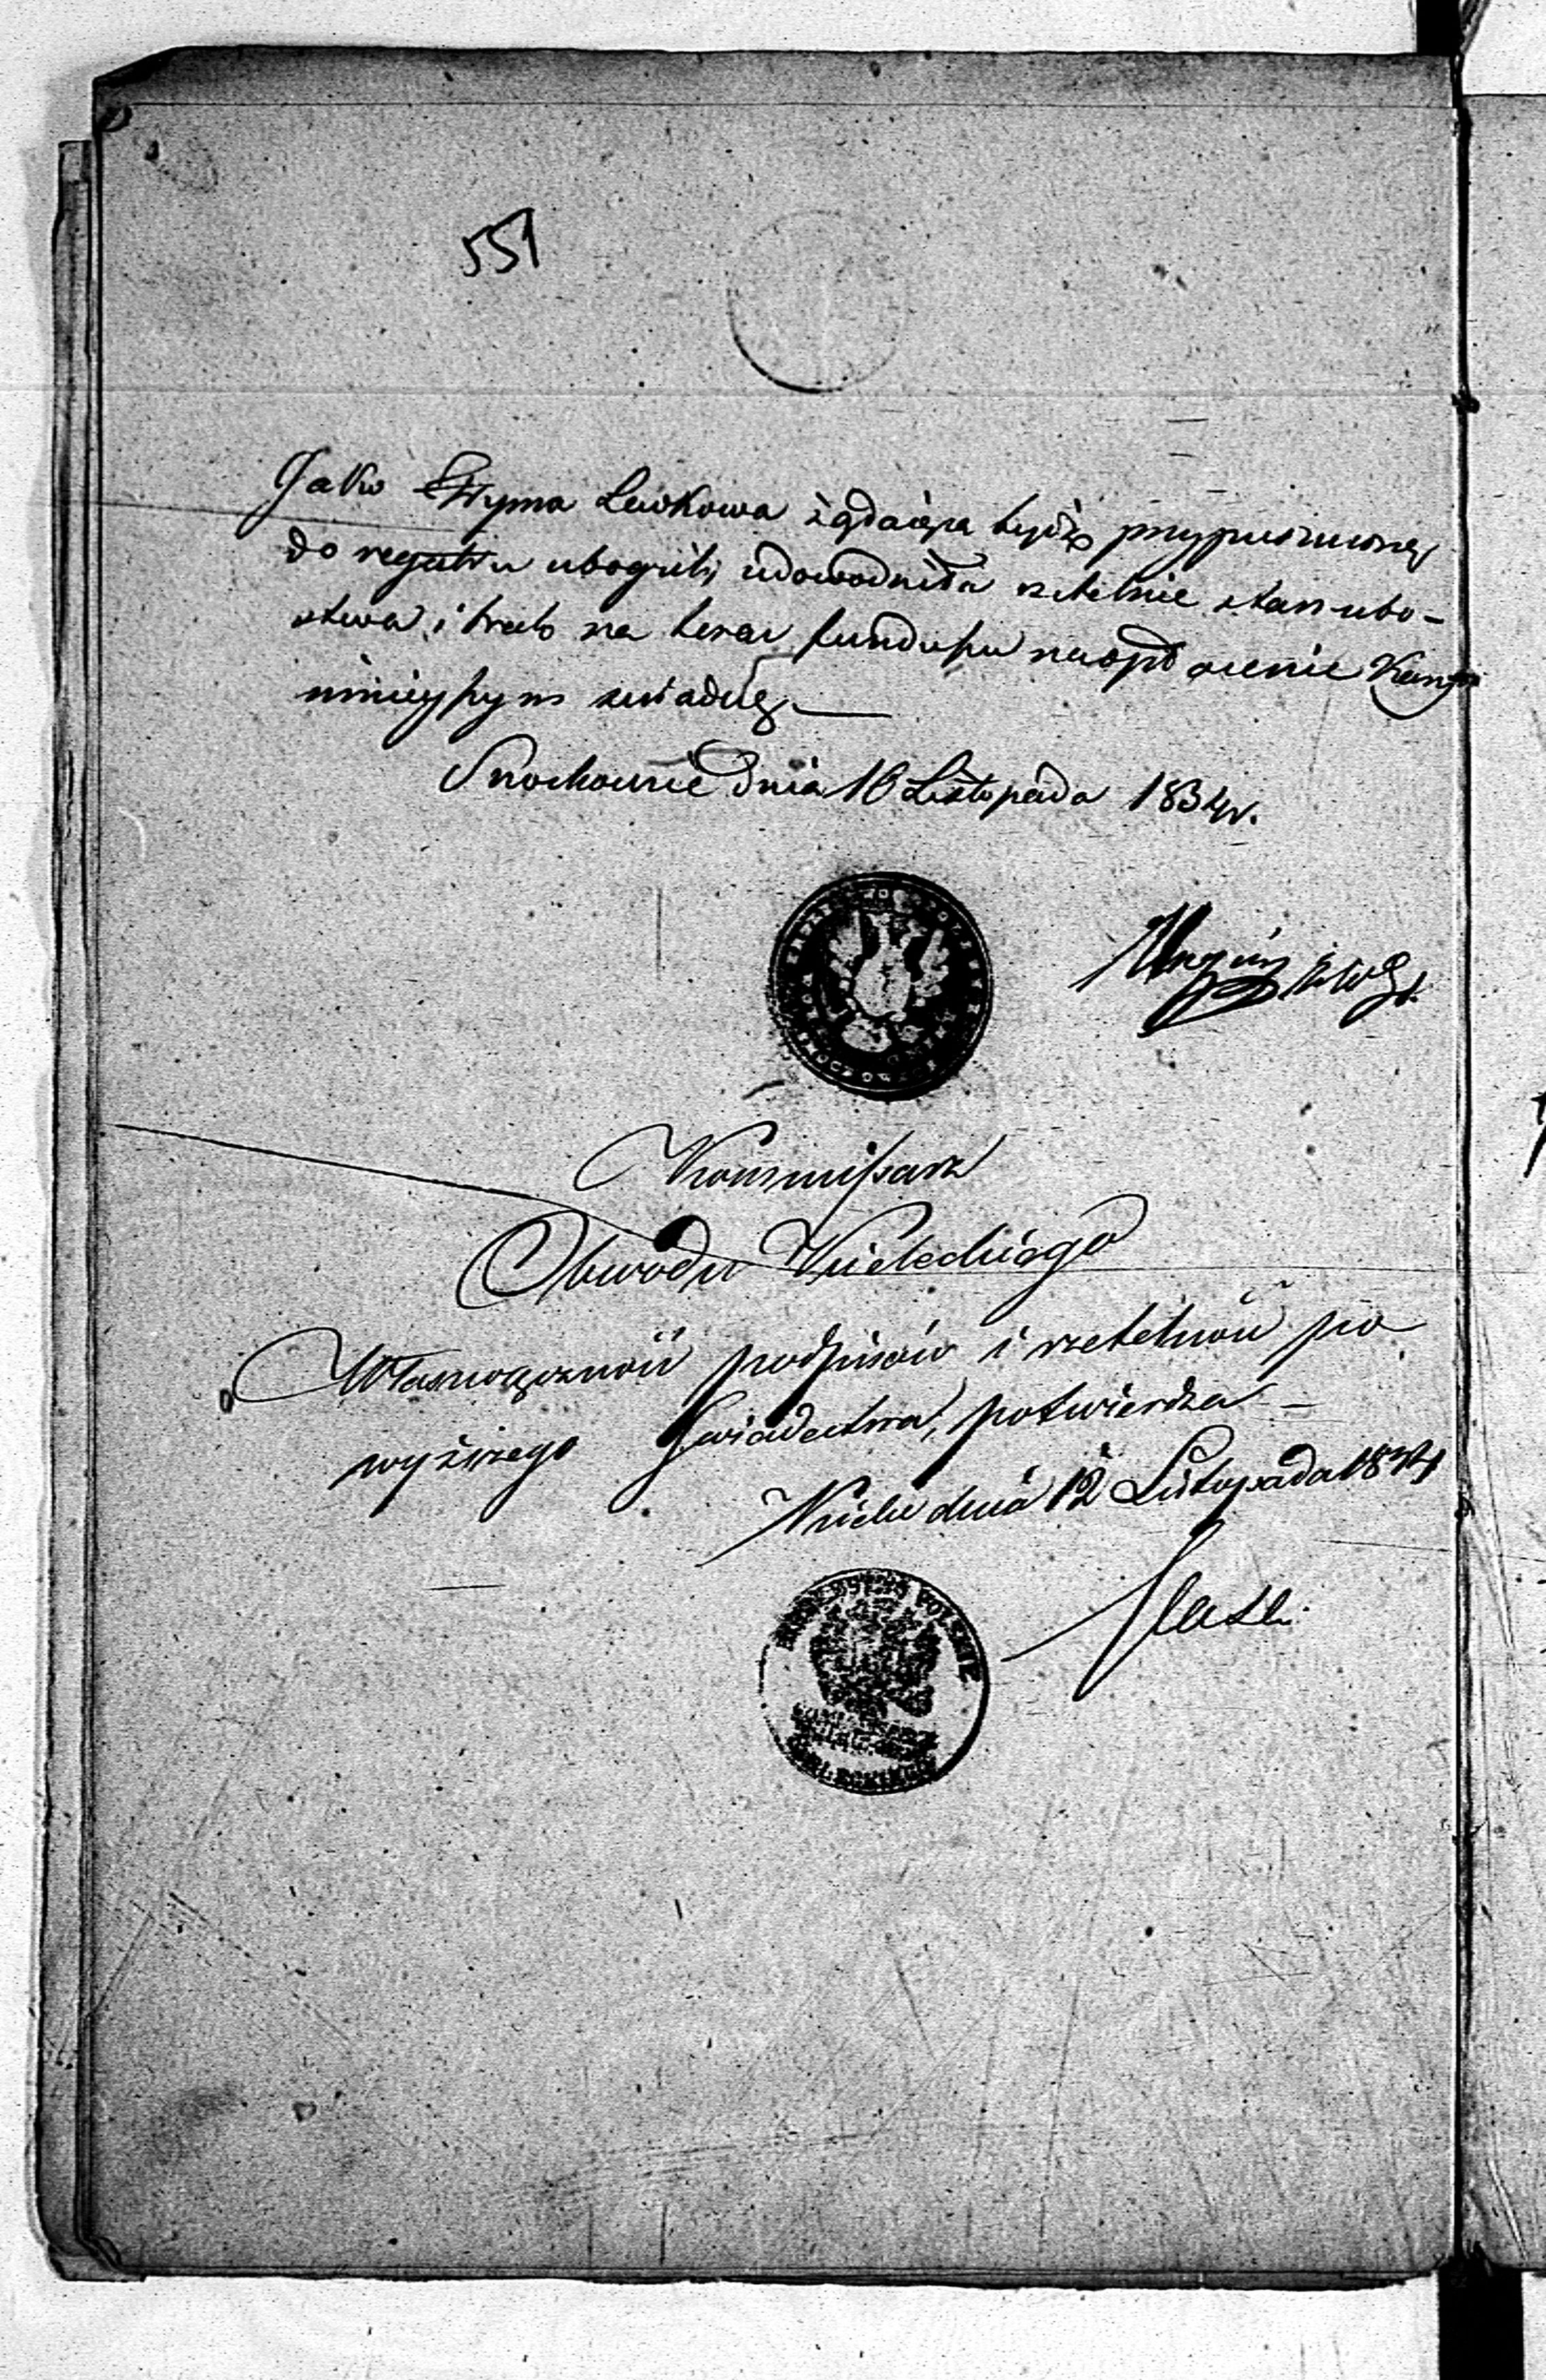 551
Jako Ryma Lewkowa żądaiąca bydź przypuszczoną
do regestru ubogich, udowodniła rzetelnie stan ubo-
stwa, i brak na teraz funduszu na opłacenie
ninieyszym swiadczę
Snochowice dnia 10 Listopada 1834 r.
Kommissarz
Obwodu Kieleckiego
Własnoręczność podpisów i rzetelność po
wyższego Swiadectwa, potwierdza
Kielce dnia 12 Listopada 1834
KROLESTWO POLSKIE